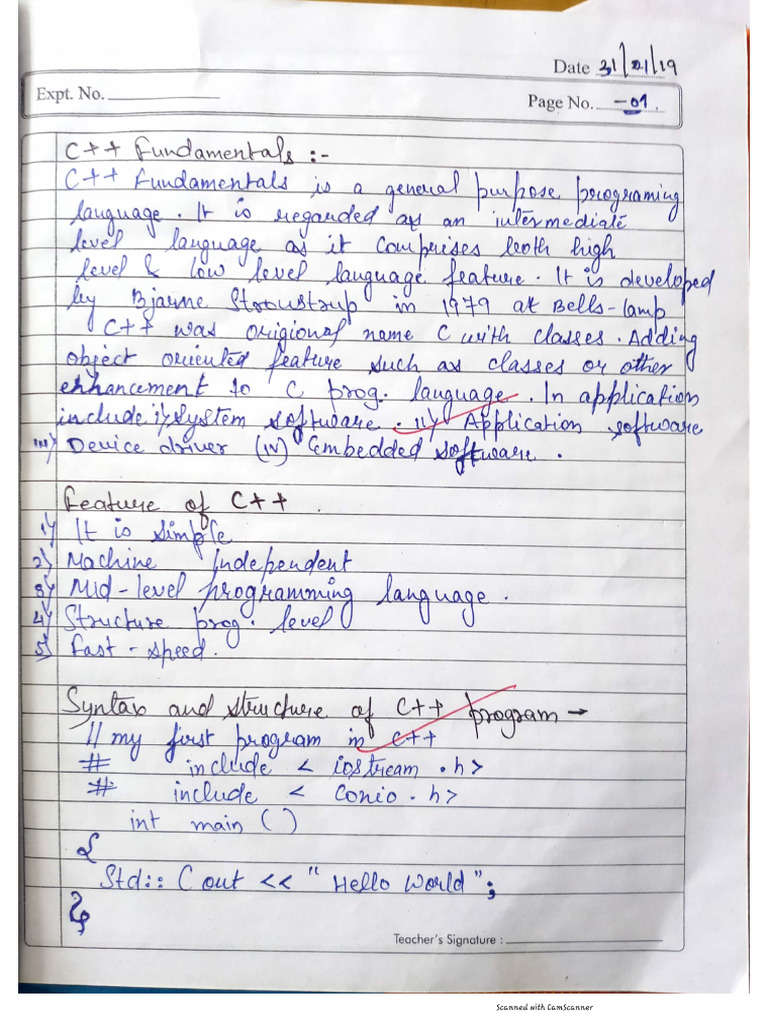 Date 31/01/19
Expt. No.
Page No. -01.
C++ Fundamentals :-
C++ Fundamentals is a general purpose programing
language. It is regarded as an intermediate
level language as it comprises both high
level & low level language feature. It is developed
by Bjarne Stroustrup in 1979 at Bells-lamp
C++ was origional name C with classes. Adding
object oriented feature such as classes or other
enhancement to C prog. language. In application
include i) System software. ii) Application software
iii) Device driver (iv) Embedded software.
Feature of C++.
1) It is simple
2) Machine Independent
3) Mid-level programming language.
4) Structure prog. level
5) Fast-speed.
Syntax and structure of C++ program →
// my first program in C++
# include < iostream .h>
# include < Conio .h>
int main ( )
{
Std:: Cout << "Hello World";
}
Teacher's Signature :
Scanned with CamScanner